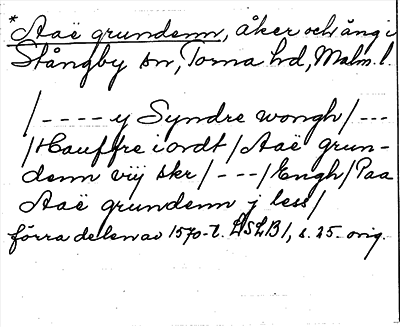 * Aaë grundenn, åker och äng i
Stångby sn, Torna hd, Malm. l.
/ - - - - y Syndre wongh / - - -
/ Hauffre iordt / Aaë grun-
denn vij skr / - - - / Engh / Paa
Aaë grundenn j less /
förra delen av 1570-t. LSLB 1, s. 25. orig.